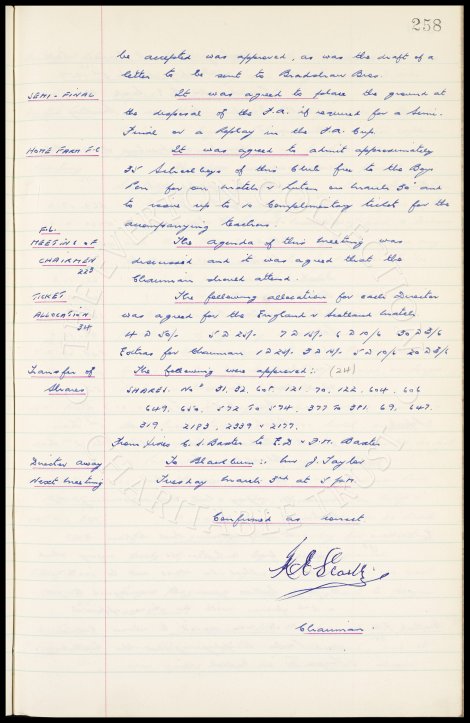 258
be accepted was approved, as was the draft of a
letter to be sent to Bradshaw Bros.
SEMI-FINAL It was agreed to place the ground at
the disposal of the F.A. if required for a Semi-
Final or a Replay in the F.A. Cup.
HOME FARM F.C It was agreed to admit approximately
35 Schoolboys of this Club free to the Boys
Pen for our match v Luton on March 30th and
to issue up to 10 Complimentary tickets for the
accompanying teachers.
F.L. MEETING OF CHAIRMEN The agenda of this meeting was
discussed and it was agreed that the
Chairman should attend.
TICKET ALLOCATION The following allocation for each Director
was agreed for the England v Scotland match
4 @ 50/- 5 @ 25/- 7 @ 15/- 6 @ 10/6 30 @ 3/6
Extras for Chairman 1 @ 25/- 3 @ 15/- 5 @ 10/6 20 @ 3/6
Transfer of Shares The following were approved:- (24)
SHARES. Nos 31, 32, 608, 121, 70, 122, 604, 606
649, 650, 572 to 574, 377 to 381, 69, 647,
319, 2183, 2339 & 2177.
From Exors C. S. Baxter to E.D & F.M. Baxter
Director away To Blackburn:- Mr J. Taylor
Next meeting Tuesday March 3rd at 5 p.m.
Confirmed as correct
Chairman.
THE EVERTON COLLECTION
CHARITABLE TRUST